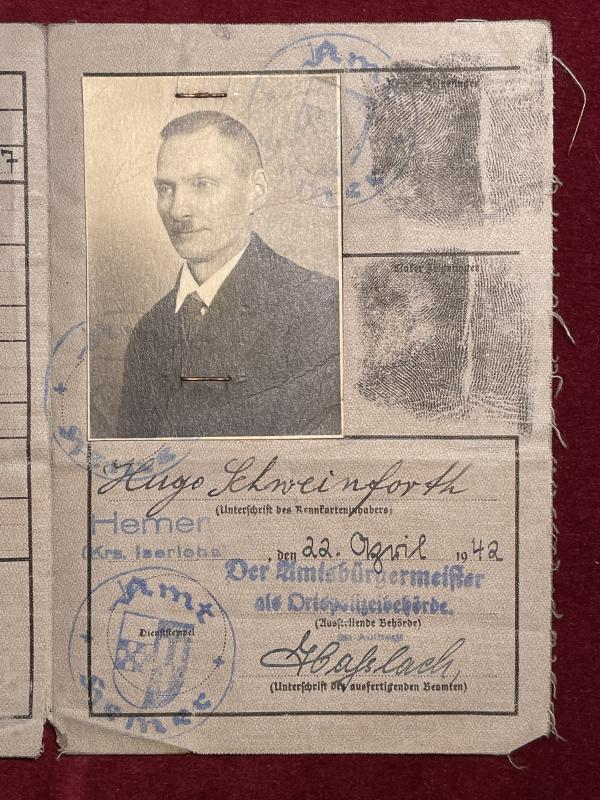 7
Amt
Zeigefinger
Hemer
Linker Zeigefinger
Amt
Hugo Schweinforth
(Unterschrift des Kennkarteninhabers)
Hemer
(Krs. Iserlohn
, den 22. April 1942
Der Amtsbürgermeister
als Ortspolizeibehörde.
(Ausstellende Behörde)
Im Auftrag
Amt
Dienststempel
Haßlach
Hemer
(Unterschrift des ausfertigenden Beamten)